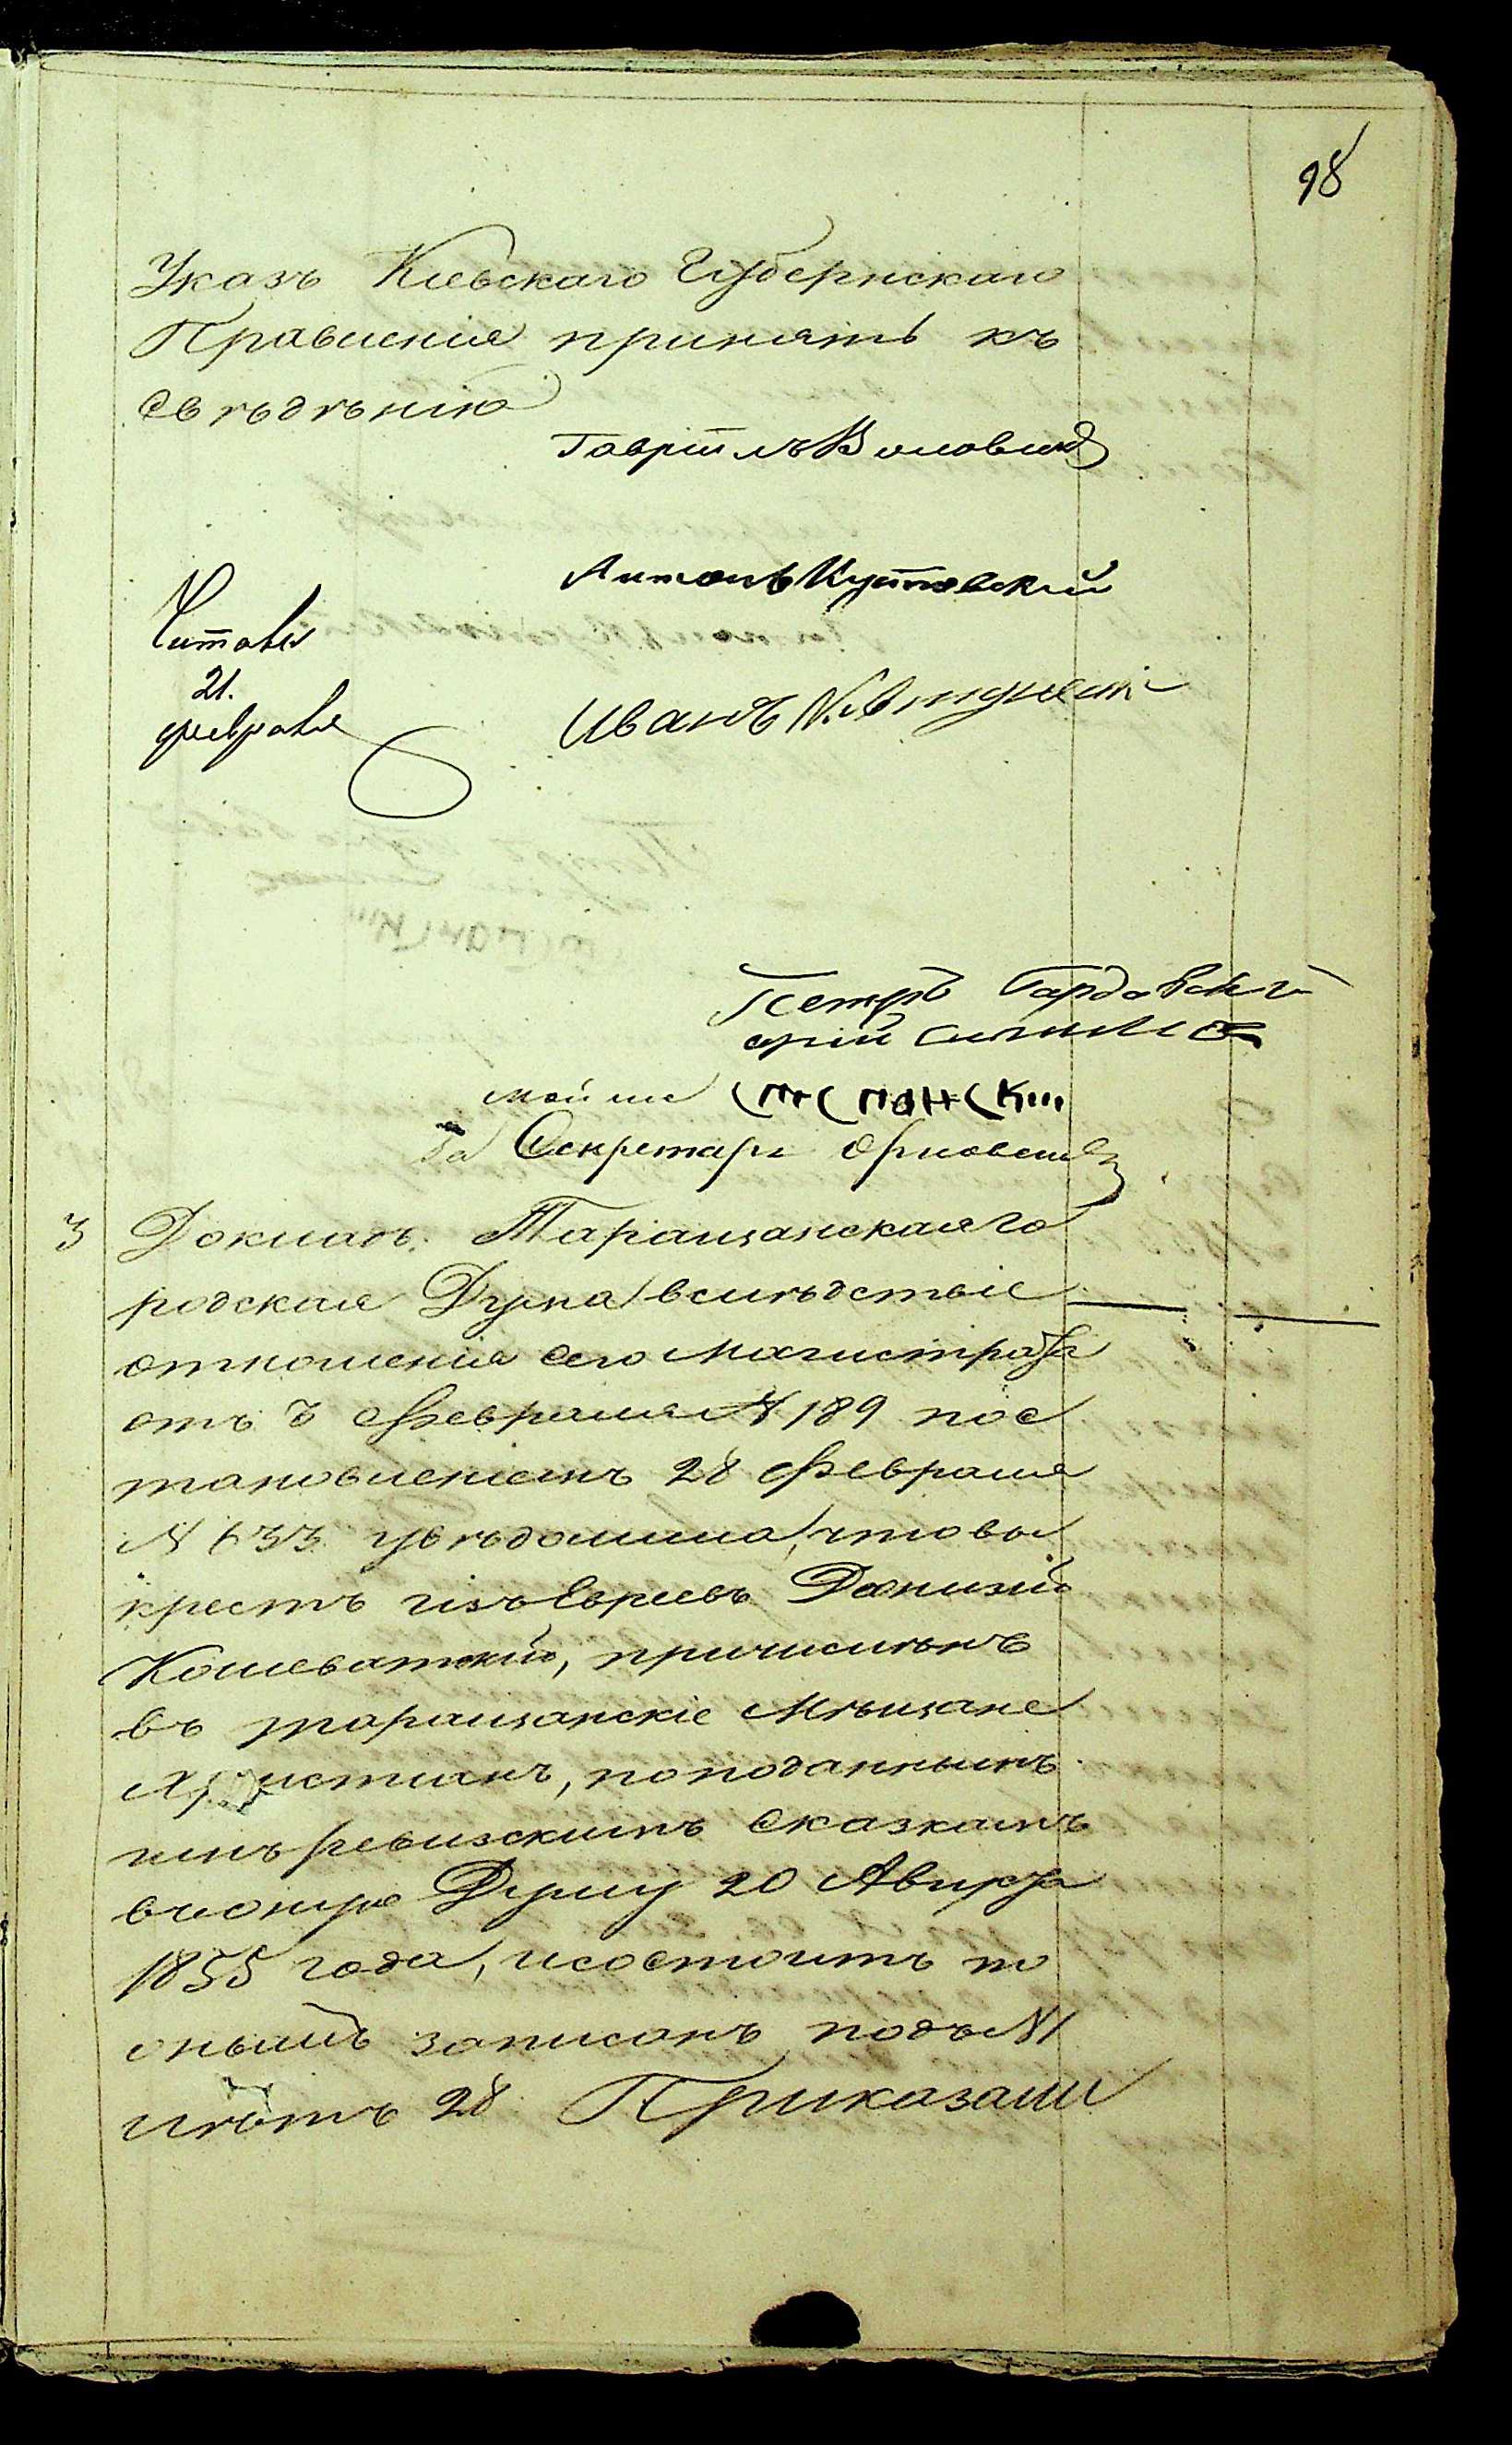 98
Указъ Кіевскаго Губернскаго
Правленія принять къ
свѣдѣнію
Гавріилъ
Антонъ Кутковскій
Читалъ
21.
февраля
Иванъ
Петръ Гардовскій
мойше
За Секретаря
3 Доклаъ. Таращанская го
родская Дума вслѣдствіе
отношенія сего магистрата
отъ Февраля № 189 пос
тановленіемъ 28 Февраля
№ 633 увѣдомила, что вы
крестъ изъ Евреевъ Діонизій
Кошеватскій, причисленъ
въ таращанскіе Мѣщане
Христіанъ, по поданнымъ
имъ ревизскимъ сказкамъ
въ оную Думу 20 Августа
1855 года, и состоитъ по
онымъ записанъ подъ № 1
лѣтъ 28 Приказали